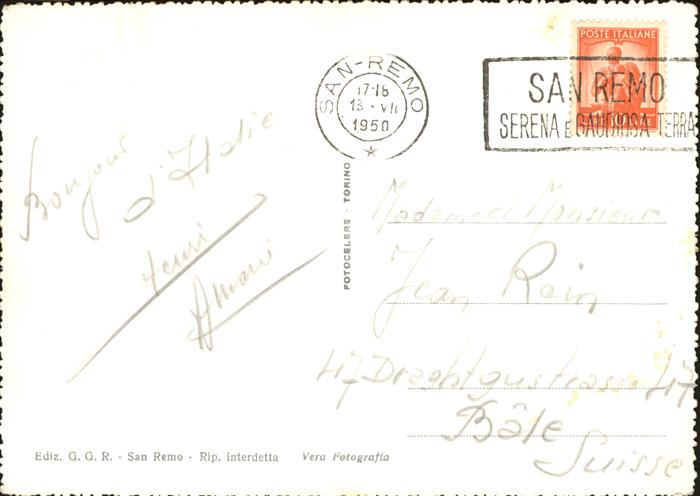 SAN-REMO
17-18
13-VII
1950
POSTE ITALIANE
SAN REMO
SERENA E GAUDIOSA TERRA
Bonjour
d'Italie
Henri
FOTOCELERE - TORINO
Madame et Monsieur
Jean Rein
47
47
Bâle
Suisse
Ediz. G. G. R. - San Remo - Rip. interdetta Vera Fotografia